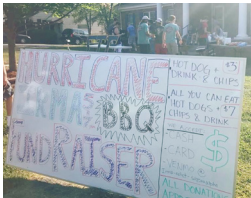 HURRICANE
IRMA
BBQ
FUNDRAISER
HOT DOG +
DRINK & CHIPS
ALL YOU CAN EAT
HOT DOGS + $7
CHIPS & DRINK
CASH
CARD
$
ALL DONATIONS